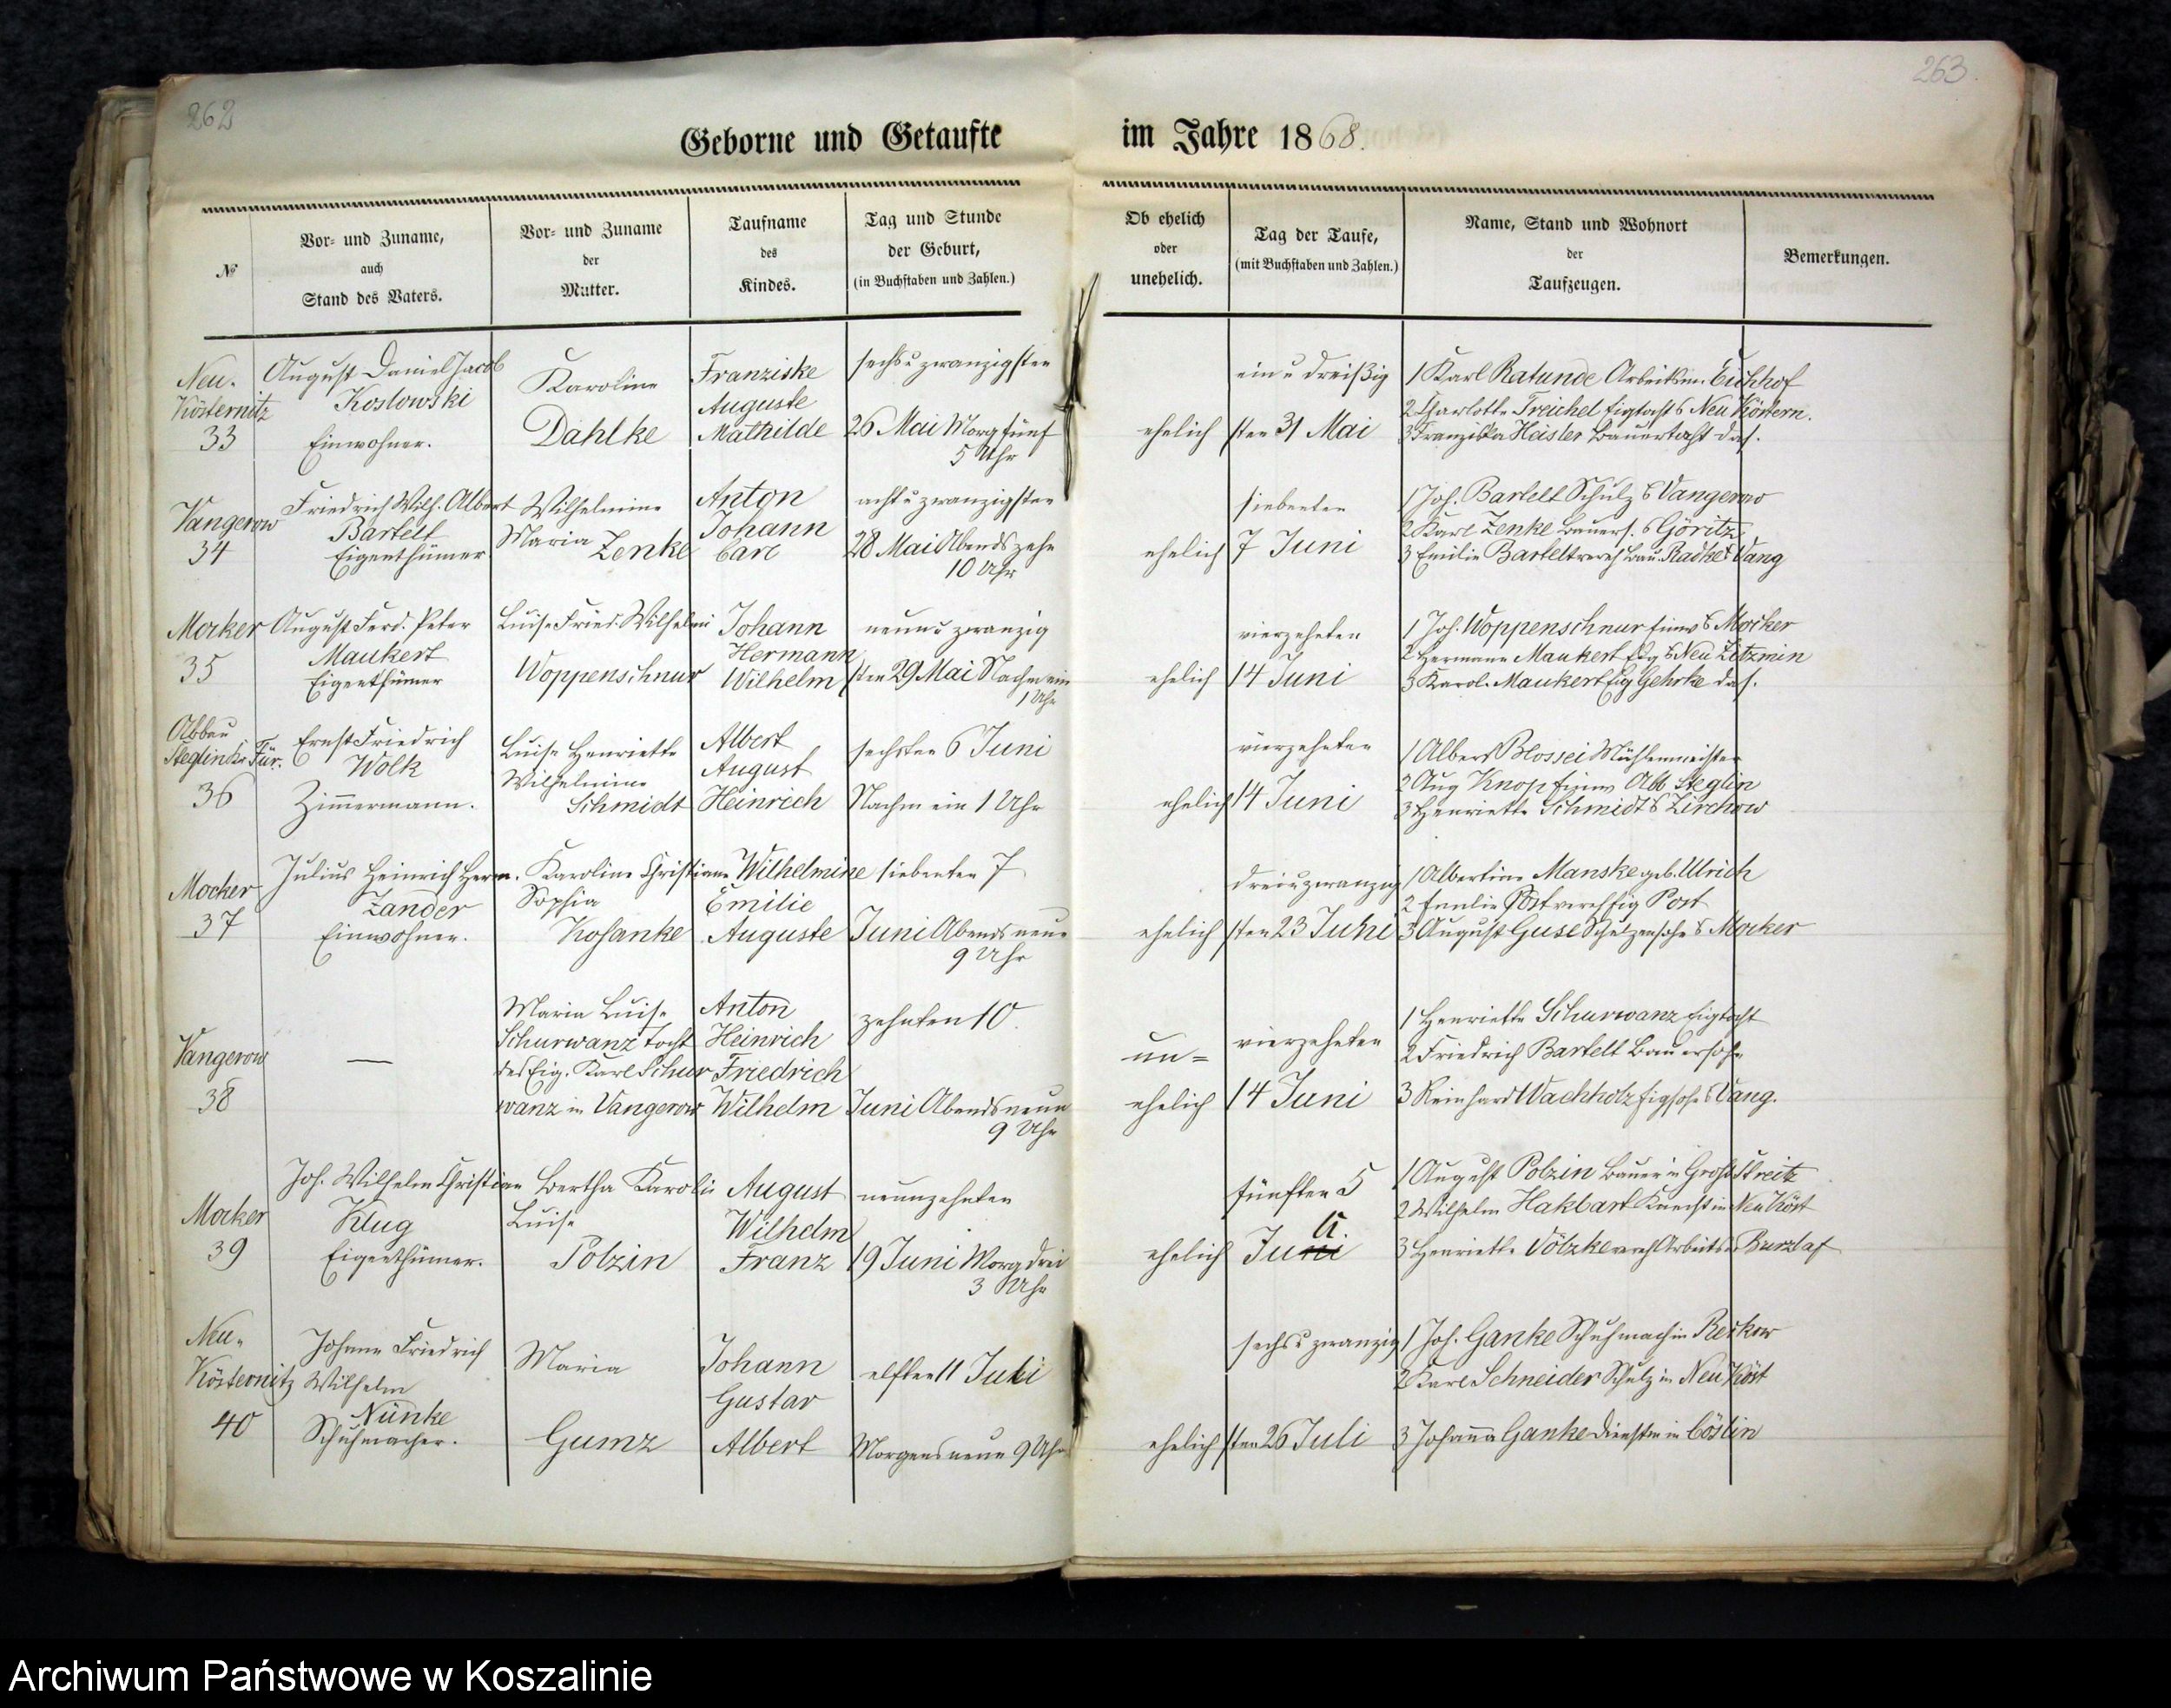 262
263.
Geborne und Getaufte
im Jahre 1868.
№
Vor- und Zuname,
auch
Stand des Vaters.
Vor- und Zuname
der
Mutter.
Taufname
des
Kindes.
Tag und Stunde
der Geburt,
(in Buchstaben und Zahlen.)
Ob ehelich
oder
unehelich.
Tag der Taufe,
(mit Buchstaben und Zahlen.)
Name, Stand und Wohnort
der
Taufzeugen.
Bemerkungen.
Neu-
Kösternitz
33
August Daniel Jacob
Koslowski
Einwohner.
Karoline
Dahlke
Franziske
Auguste
Mathilde
sechsu zwanzigsten
26 Mai Morg fünf
5 Uhr
ehelich
ein u dreißig
sten 31 Mai
1 Karl Ratunde Arbeitsm. Eichhof
2 Charlotte Treichel Eigtocht Neu Köstern.
3 Franziska Häsler Bauertocht das.
Vangerow
34
Friedrich Wilh. Albert
Bartelt
Eigenthümer
Wilhelmine
Maria Zenke
Anton
Johann
Carl
achtu zwanzigsten
28 Mai Abends zehn
10 Uhr
ehelich
siebenten
7 Juni
1 Joh. Bartelt Schulz Vangerow
2 Karl Zenke Bauers. Göritz
3 Emilie Bartelt verehl Bau. Radke Vang
Mocker
35
August Ferd. Peter
Maukert
Eigenthümer
Luise Fried. Wilhelmi
Woppenschnur
Johann
Hermann
Wilhelm
neunu zwanzig
sten 29 Mai Nachm ein
1 Uhr
ehelich
vierzehnten
14 Juni
1 Joh. Woppenschnur Einw Mocker
2 Hermann Maukert Eig Neu Zitzmin
3 Karol. Maukert Eig Gehrke das.
Abbau
Steglin b. Für.
36
Ernst Friedrich
Wolk
Zimmermann.
Luise Henriette
Wilhelmine
Schmidt
Albert
August
Heinrich
sechsten 6 Juni
Nachm ein 1 Uhr
ehelich
vierzehnten
14 Juni
1 Albert Blossei Mühlenmeister
2 Aug Knop Einw Abb Steglin
3 Henriette Schmidt Zirchow
Mocker
37
Julius Heinrich Herm.
Zander
Einwohner.
Karoline Christiane
Sophia
Kosanke
Wilhelmine
Emilie
Auguste
siebenten 7
Juni Abends neun
9 Uhr
ehelich
dreiuzwanzig
sten 23 Juni
1 Albertine Manske geb. Ulrich
2 Emilie Post verehl Eig Post
3 August Guse Schulzensohn Mocker
Vangerow
38
—
Maria Luise
Schurwanz Tocht
des Eig. Karl Schur
wanz in Vangerow
Anton
Heinrich
Friedrich
Wilhelm
zehnten 10.
Juni Abends neun
9 Uhr
un=
ehelich
vierzehnten
14 Juni
1 Henriette Schurwanz Eigtocht
2 Friedrich Bartelt Bauersohn
3 Reinhard Wachholz Eigsohn Vang.
Mocker
39
Joh. Wilhelm Christian
Klug
Eigenthümer.
Bertha Karoli
Luise
Polzin
August
Wilhelm
Franz
neunzehnten
19 Juni Morg drei
3 Uhr
ehelich
fünften 5
li.
Juni
1 August Polzin Bauer in Groß Streitz
2 Wilhelm Hakbart Knecht in Neu Köst
3 Henriette Völzke verehl Arbeits Burzlaf
Neu-
Kösternitz
40
Johann Friedrich
Wilhelm
Nünke
Schuhmacher.
Maria
Gumz
Johann
Gustav
Albert
elften 11 Juli
Morgens neun 9 Uhr
ehelich
sechsu zwanzig
sten 26 Juli
1 Joh. Ganke Schuhmach in Rerkow
2 Karl Schneider Schulz in Neu Köst
3 Johanna Ganke dienstm in Cöslin
Archiwum Państwowe w Koszalinie